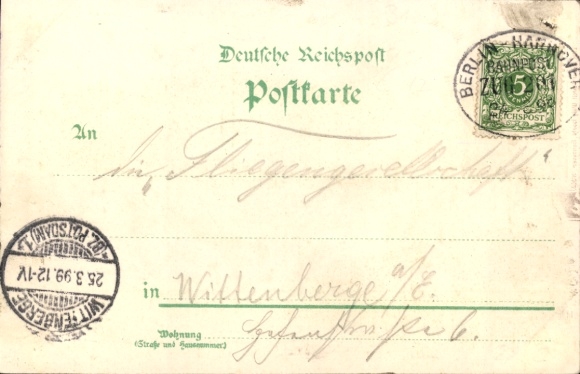 Deutsche Reichspost
Postkarte
BERLIN - HANNOVER
BAHNPOST
ZUG
5
REICHSPOST
An
die „Fliegengesellschaft“
WITTENBERGE
25.3.99.12-1V
BZ POTSDAM
in Wittenberge a/E.
Wohnung
(Straße und Hausnummer)
6.